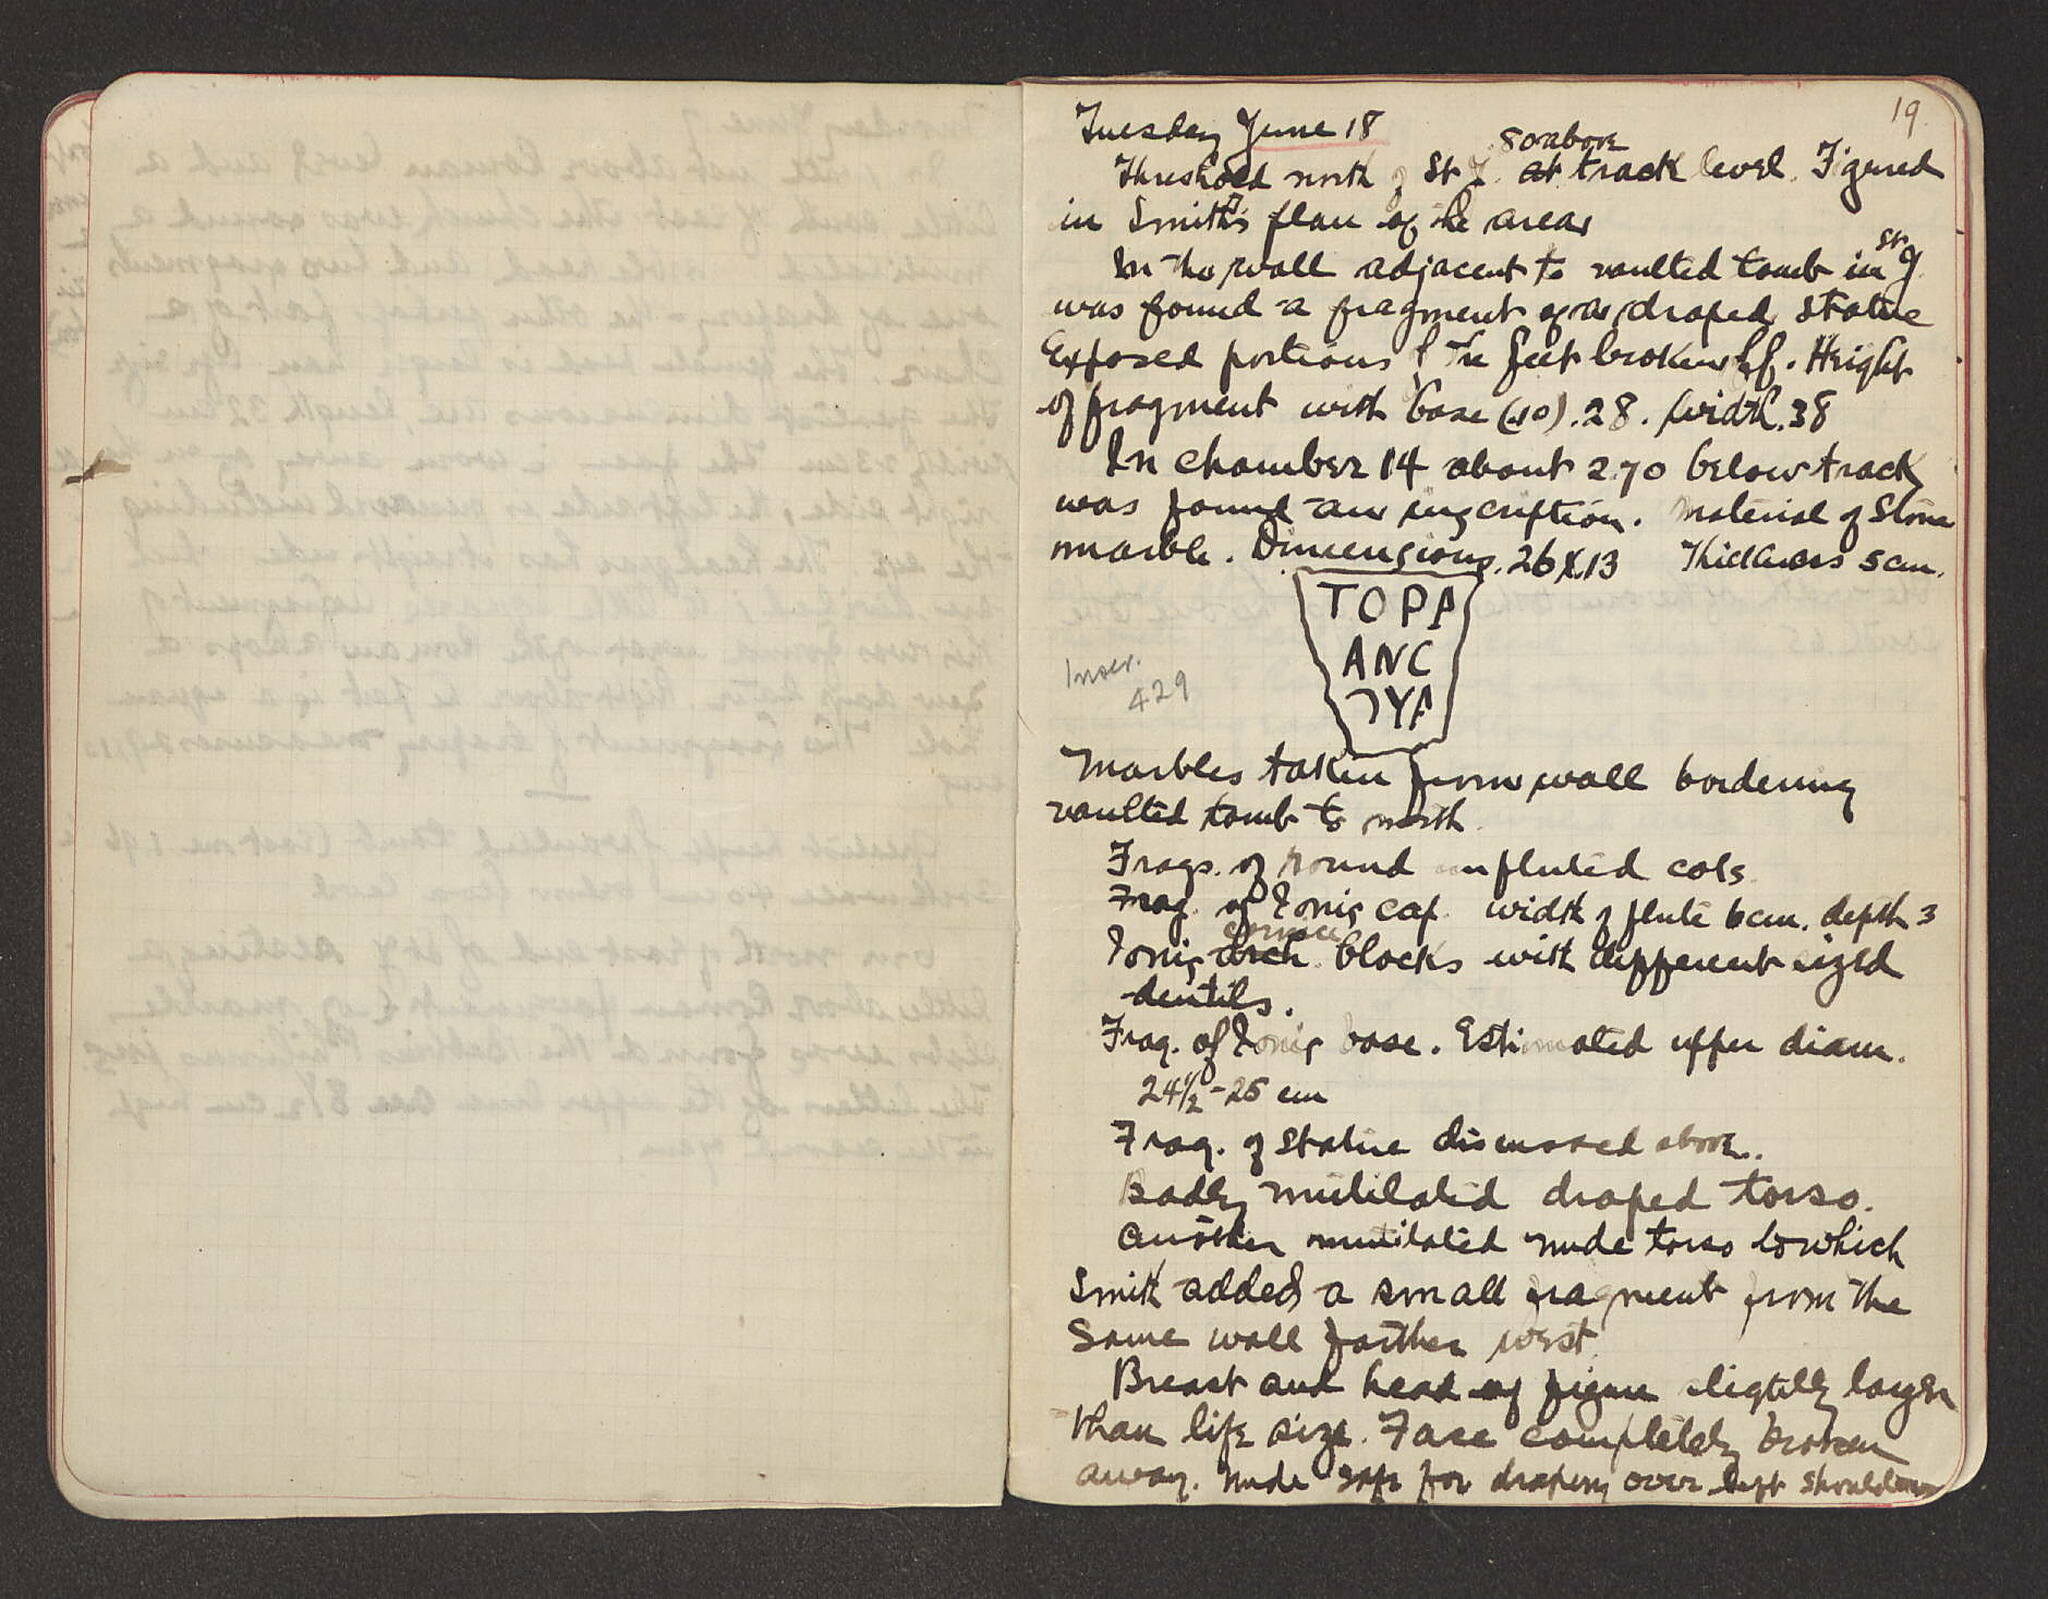 19
Tuesday June 18
80 above
Threshold north of St J. at track level. Figured
in Smith's plan of the area
In the wall adjacent to vaulted tomb in St J.
was found a fragment of a draped statue
Exposed portions of the feet broken off. Height
of fragment with base (.10) .28. Width .38
In chamber 14 about 2.70 below track
was found an inscription. Material of stone
marble. Dimensions .26 x .13 Thickness 5 cm.
TOPA
ANC
ΥΑ
Inscr.
429
Marbles taken from wall bordering
vaulted tomb to north.
Frags. of round unfluted cols
Frag. of Ionic cap. width of flute 6 cm. depth 3
cornice
Ionic arch. blocks with different sized
dentils.
Frag. of Ionic base. Estimated upper diam.
24½ - 25 cm
Frag. of statue discussed above.
Badly mutilated draped torso.
Another mutilated nude torso to which
Smith added a small fragment from the
same wall farther west.
Breast and head of figure slightly larger
than life size. Face completely broken
away. Nude safe for drapery over left shoulder